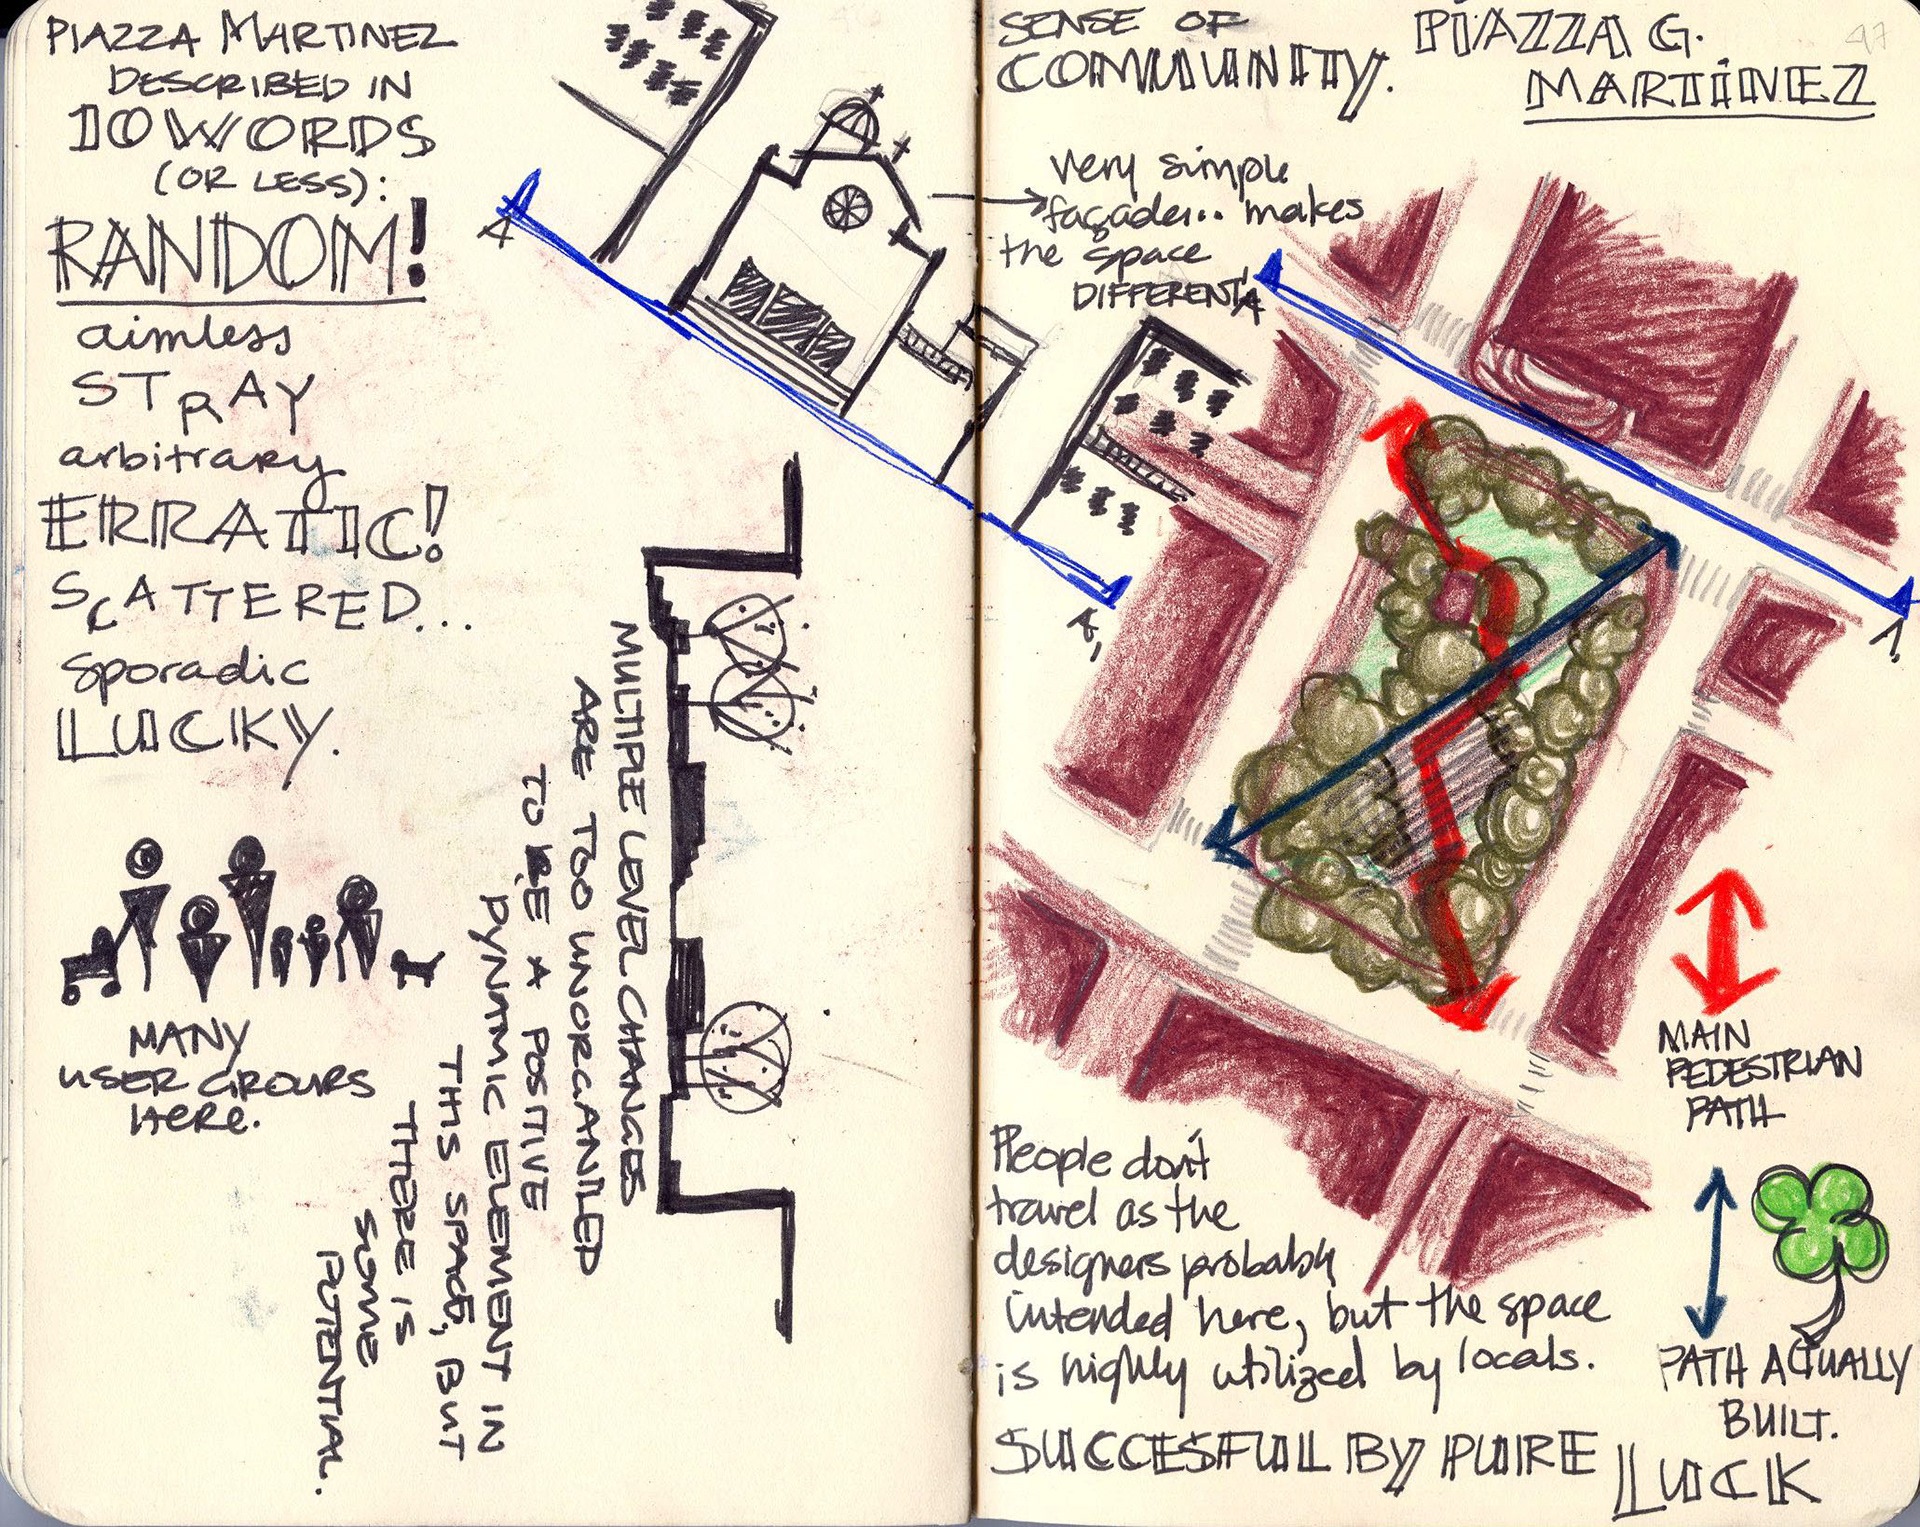 PIAZZA MARTINEZ
DESCRIBED IN
10 WORDS
(OR LESS):
RANDOM!
aimless
STRAY
arbitrary
ERRATIC!
SCATTERED...
sporadic
LUCKY.
MANY
USER GROUPS
HERE.
MULTIPLE LEVEL CHANGES
ARE TOO UNORGANIZED
TO BE A POSITIVE
DYNAMIC ELEMENT IN
THIS SPACE, BUT
THERE IS
SOME
POTENTIAL.
A
A,
SENSE OF
COMMUNITY.
PIAZZA G.
MARTINEZ
47
very simple
façade... makes
the space
DIFFERENT
A
A,
MAIN
PEDESTRIAN
PATH
People don't
travel as the
designers probably
intended here, but the space
is highly utilized by locals.
PATH ACTUALLY
BUILT.
SUCCESFUL BY PURE LUCK